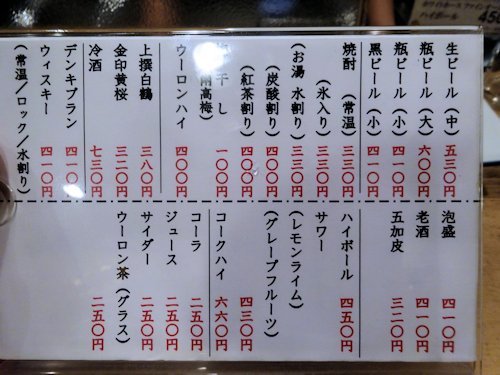 ハイボール
生ビール（中） 五三〇円
瓶ビール（大） 六〇〇円
瓶ビール（小） 四一〇円
黒ビール（小） 四一〇円
焼酎（常温） 三三〇円
（氷入り） 三三〇円
（お湯 水割り） 三三〇円
（炭酸割り） 四〇〇円
（紅茶割り） 四〇〇円
干し 一〇〇円
高梅）
ウーロンハイ 四〇〇円
上撰白鶴 三八〇円
金印黄桜 三二〇円
冷酒 七三〇円
デンキブラン 四一〇円
ウィスキー 四一〇円
（常温／ロック／水割り）
泡盛 四一〇円
老酒 四一〇円
五加皮 三二〇円
ハイボール 四五〇円
サワー
（レモンライム）
（グレープフルーツ）
四三〇円
コークハイ 六六〇円
コーラ 二五〇円
ジュース 二五〇円
サイダー 二五〇円
ウーロン茶（グラス） 二五〇円